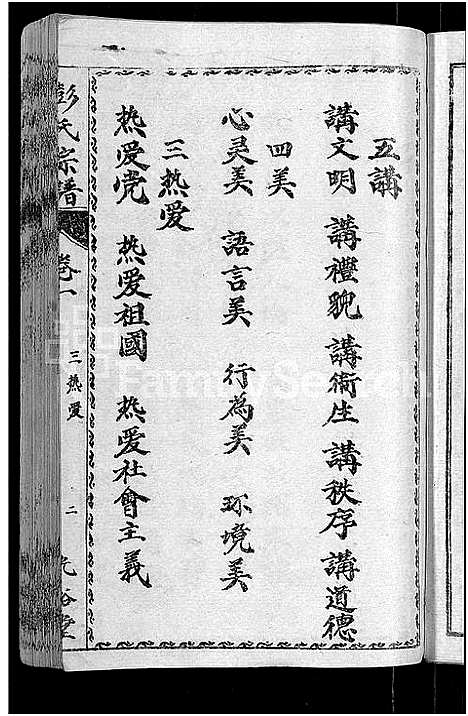 五講
講文明 講禮貌 講衛生 講秩序 講道德
四美
心灵美 語言美 行為美 环境美
三热爱
热爱党 热爱祖國 热爱社會主義
彭氏宗譜 卷一 三热爱 二
FamilySearch